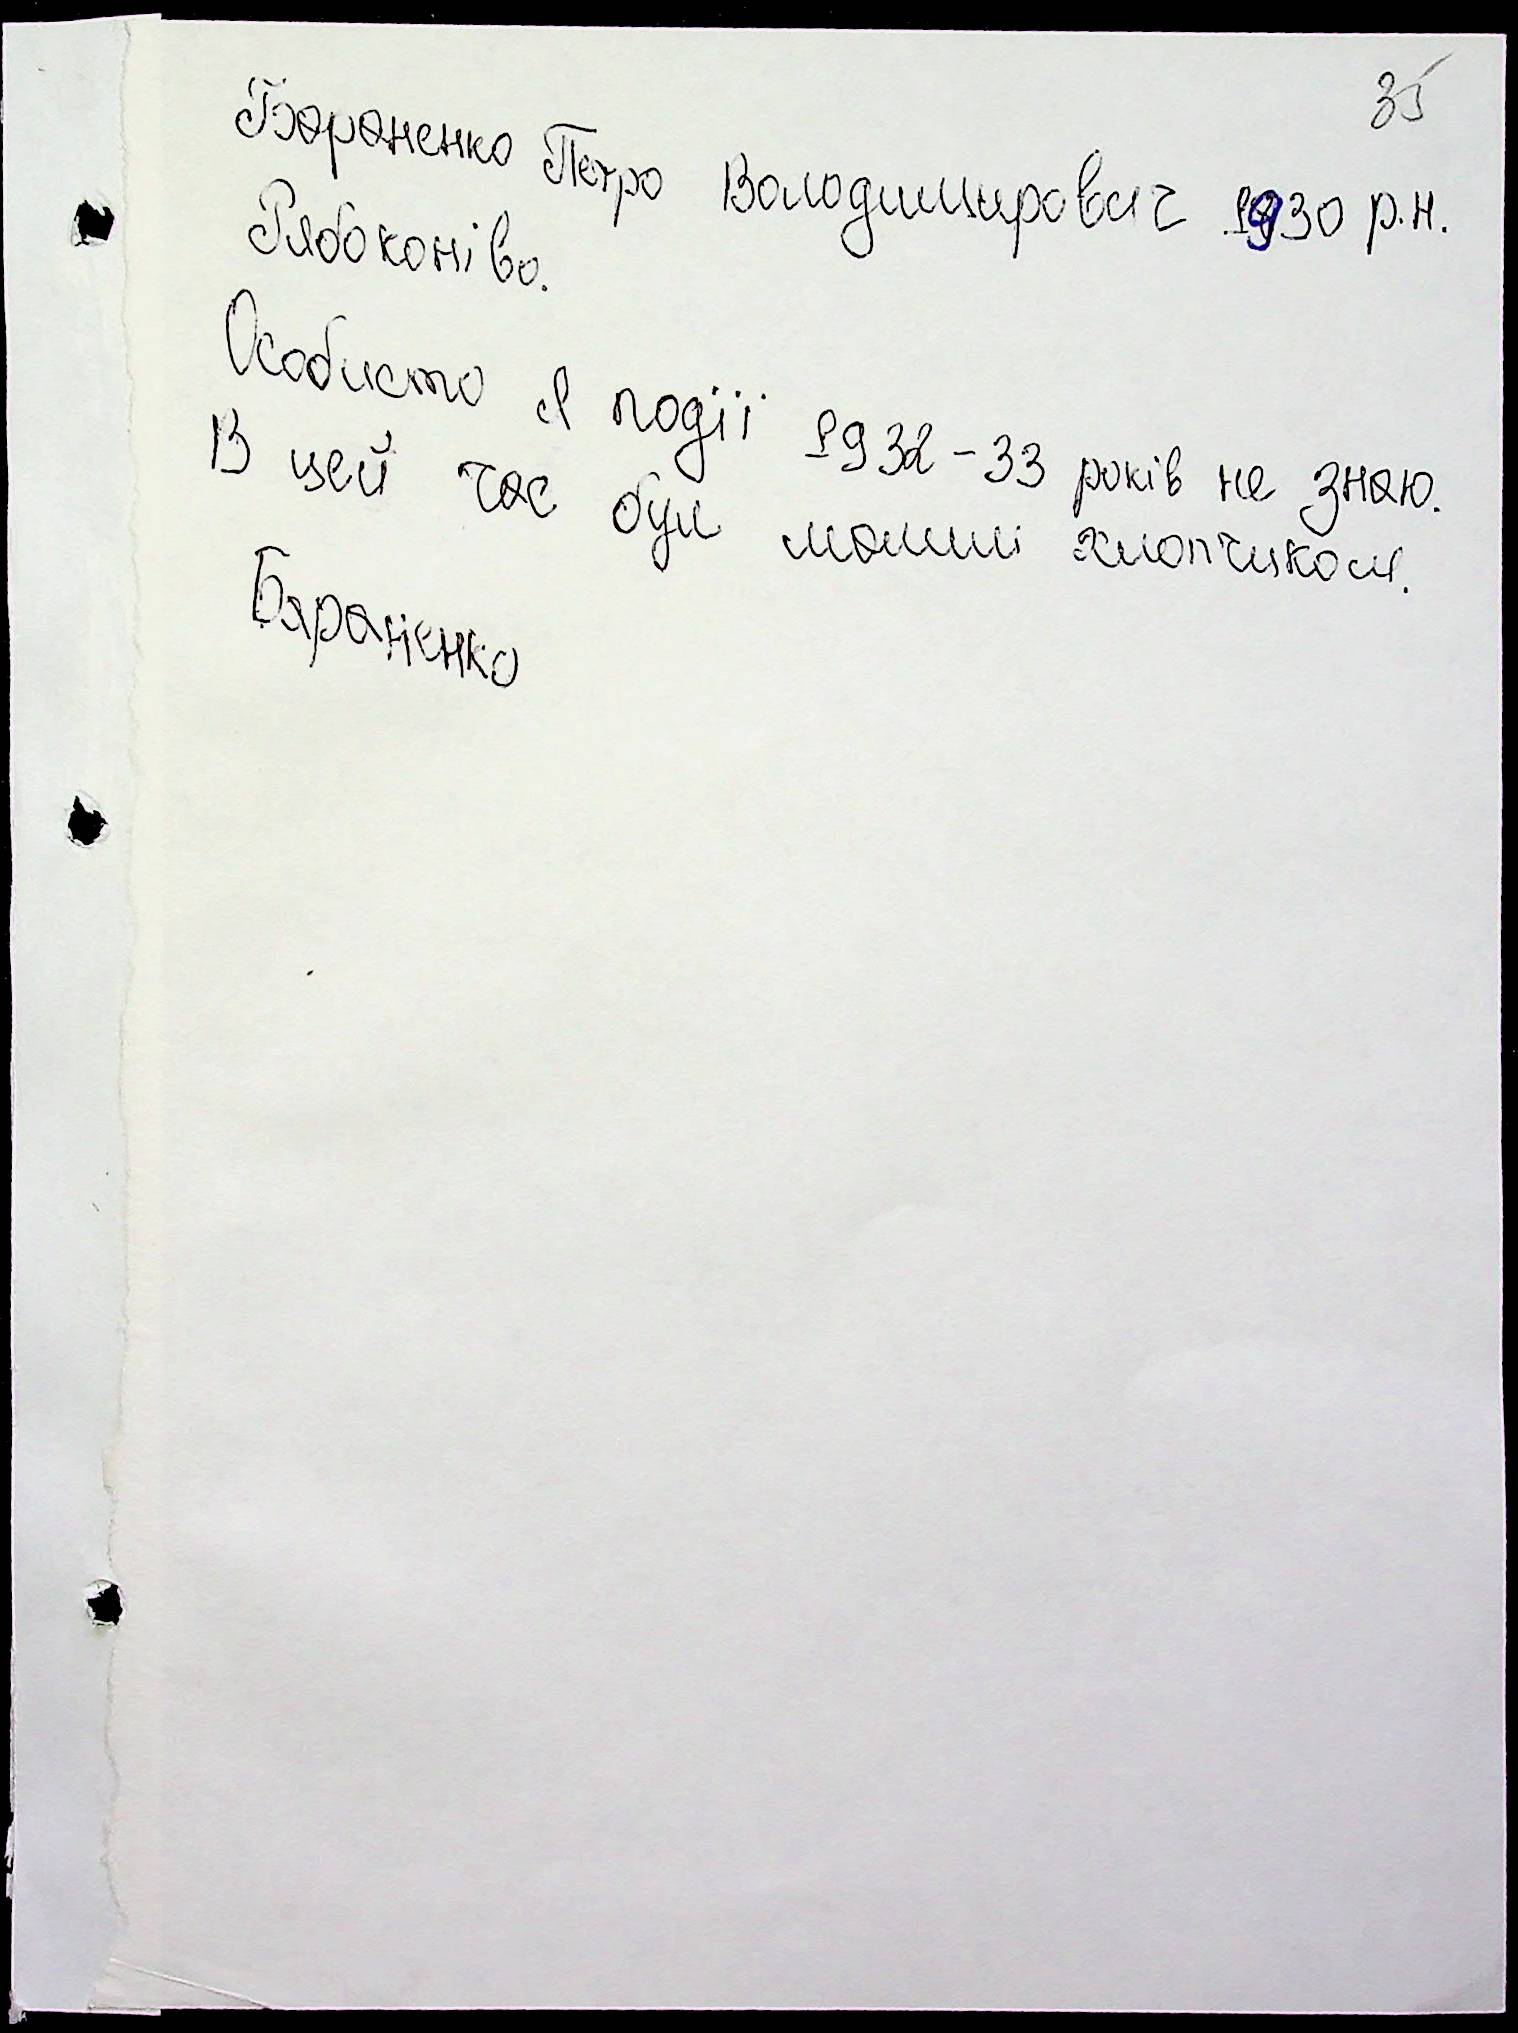 35
Бараненко Петро Володимирович 1930 р.н.
Рябоконіво.
Особисто я події 1932-33 років не знаю.
В цей час був малим хлопчиком.
Бараненко